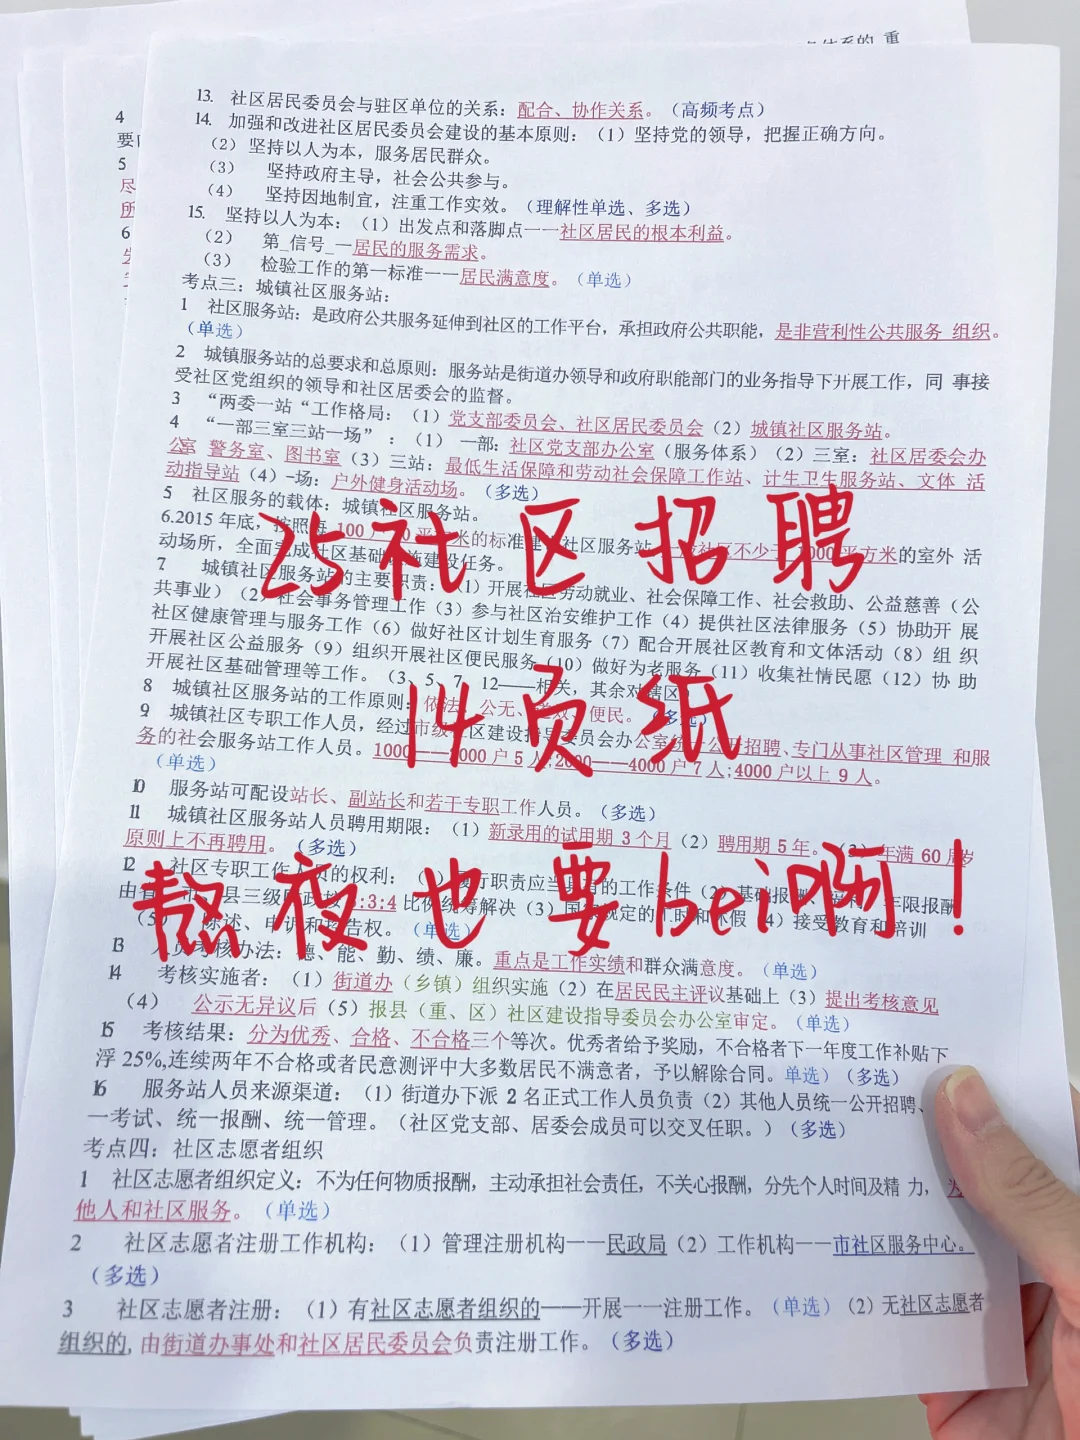 本体系的 重
4
要
5
尽
所
6
13. 社区居民委员会与驻区单位的关系：配合、协作关系。（高频考点）
14. 加强和改进社区居民委员会建设的基本原则：（1）坚持党的领导，把握正确方向。
（2）坚持以人为本，服务居民群众。
（3） 坚持政府主导，社会公共参与。
（4） 坚持因地制宜，注重工作实效。（理解性单选、多选）
15. 坚持以人为本：（1）出发点和落脚点一一社区居民的根本利益。
（2） 第_信号_一居民的服务需求。
（3） 检验工作的第一标准一一居民满意度。（单选）
考点三：城镇社区服务站：
1 社区服务站：是政府公共服务延伸到社区的工作平台，承担政府公共职能，是非营利性公共服务 组织。
（单选）
2 城镇服务站的总要求和总原则：服务站是街道办领导和政府职能部门的业务指导下开展工作，同 事接
受社区党组织的领导和社区居委会的监督。
3 “两委一站“工作格局：（1）党支部委员会、社区居民委员会（2）城镇社区服务站。
4 “一部三室三站一场” ：（1） 一部：社区党支部办公室（服务体系）（2）三室：社区居委会办
公室 警务室、图书室（3）三站：最低生活保障和劳动社会保障工作站、计生卫生服务站、文体 活
动指导站（4）-场：户外健身活动场。（多选）
5 社区服务的载体：城镇社区服务站。
6.2015 年底，按照每 100 平方米的标准建 社区服务站 社区不少于 1000 平方米的室外 活
动场所，全面完成社区基础设施建设任务。
25社区招聘
7 城镇社区服务站的主要职责：（1）开展社区劳动就业、社会保障工作、社会救助、公益慈善（公
共事业）（2）社会事务管理工作（3）参与社区治安维护工作（4）提供社区法律服务（5）协助开 展
社区健康管理与服务工作（6）做好社区计划生育服务（7）配合开展社区教育和文体活动（8）组 织
开展社区公益服务（9）组织开展社区便民服务（10）做好为老服务（11）收集社情民愿（12）协 助
开展社区基础管理等工作。（3、5、7、12——相关，其余对辖区
8 城镇社区服务站的工作原则：依法、公无、 效、便民。（多选）
14页纸
9 城镇社区专职工作人员，经过市级社区建设指导委员会办公室统一公开招聘、专门从事社区管理 和服
务的社会服务站工作人员。1000——2000 户 5 人；2000——4000 户 7 人；4000 户以上 9 人。
（单选）
10 服务站可配设站长、副站长和若干专职工作人员。（多选）
11 城镇社区服务站人员聘用期限：（1）新录用的试用期 3 个月（2）聘用期 5 年。（3）年满 60 周岁
原则上不再聘用。（多选）
12 社区专职工作人员的权利：（1）履行职责应当具有的工作条件（2）基础报酬、福利、年限报酬
由省、市、县三级财政按 3:3:4 比例统筹解决（3）国家规定的工时和休假（4）接受教育和培训
熬夜也要bei啊！
（5） 陈述、申诉和控告权。（单选）
13 人员考核办法：德、能、勤、绩、廉。重点是工作实绩和群众满意度。（单选）
14 考核实施者：（1）街道办（乡镇）组织实施（2）在居民民主评议基础上（3）提出考核意见
（4） 公示无异议后（5）报县（重、区）社区建设指导委员会办公室审定。（单选）
15 考核结果：分为优秀、合格、不合格三个等次。优秀者给予奖励，不合格者下一年度工作补贴下
浮 25%,连续两年不合格或者民意测评中大多数居民不满意者，予以解除合同。单选）（多选）
16 服务站人员来源渠道：（1）街道办下派 2 名正式工作人员负责（2）其他人员统一公开招聘、
一考试、统一报酬、统一管理。（社区党支部、居委会成员可以交叉任职。）（多选）
考点四：社区志愿者组织
1 社区志愿者组织定义：不为任何物质报酬，主动承担社会责任，不关心报酬，分先个人时间及精 力，为
他人和社区服务。（单选）
2 社区志愿者注册工作机构：（1）管理注册机构一一民政局（2）工作机构一一市社区服务中心。
（多选）
3 社区志愿者注册：（1）有社区志愿者组织的——开展一一注册工作。（单选）（2）无社区志愿者
组织的，由街道办事处和社区居民委员会负责注册工作。（多选）